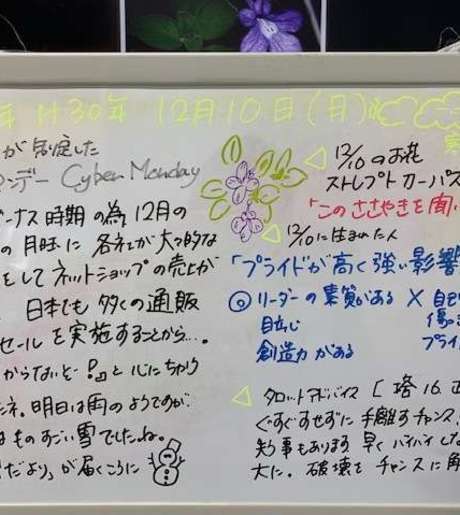 年 H30年 12月10日(月)
が制定した
ンデー Cyber Monday
ーナス時期の為、12月の
の月旺に各社が大々的な
をしてネットショップの売上が
日本でも多くの通販
セールを実施することから…。
からないと…!』と心にちかう
ネ。明日は雨のようですが
はものすごい雪でしたね。
だより」が届くころに
12/10のお花
ストレプトカーパス
「このささやきを聞い
12/10に生まれた人
「プライドが高く強い影響
◎ リーダーの素質がある
目立し
創造力がある
× 自己
プライ
タロットアドバイス [塔16.正
ぐずぐずせずに手離すチャンス
知る事もあります。早くバイバイしな
大に。破壊をチャンスに